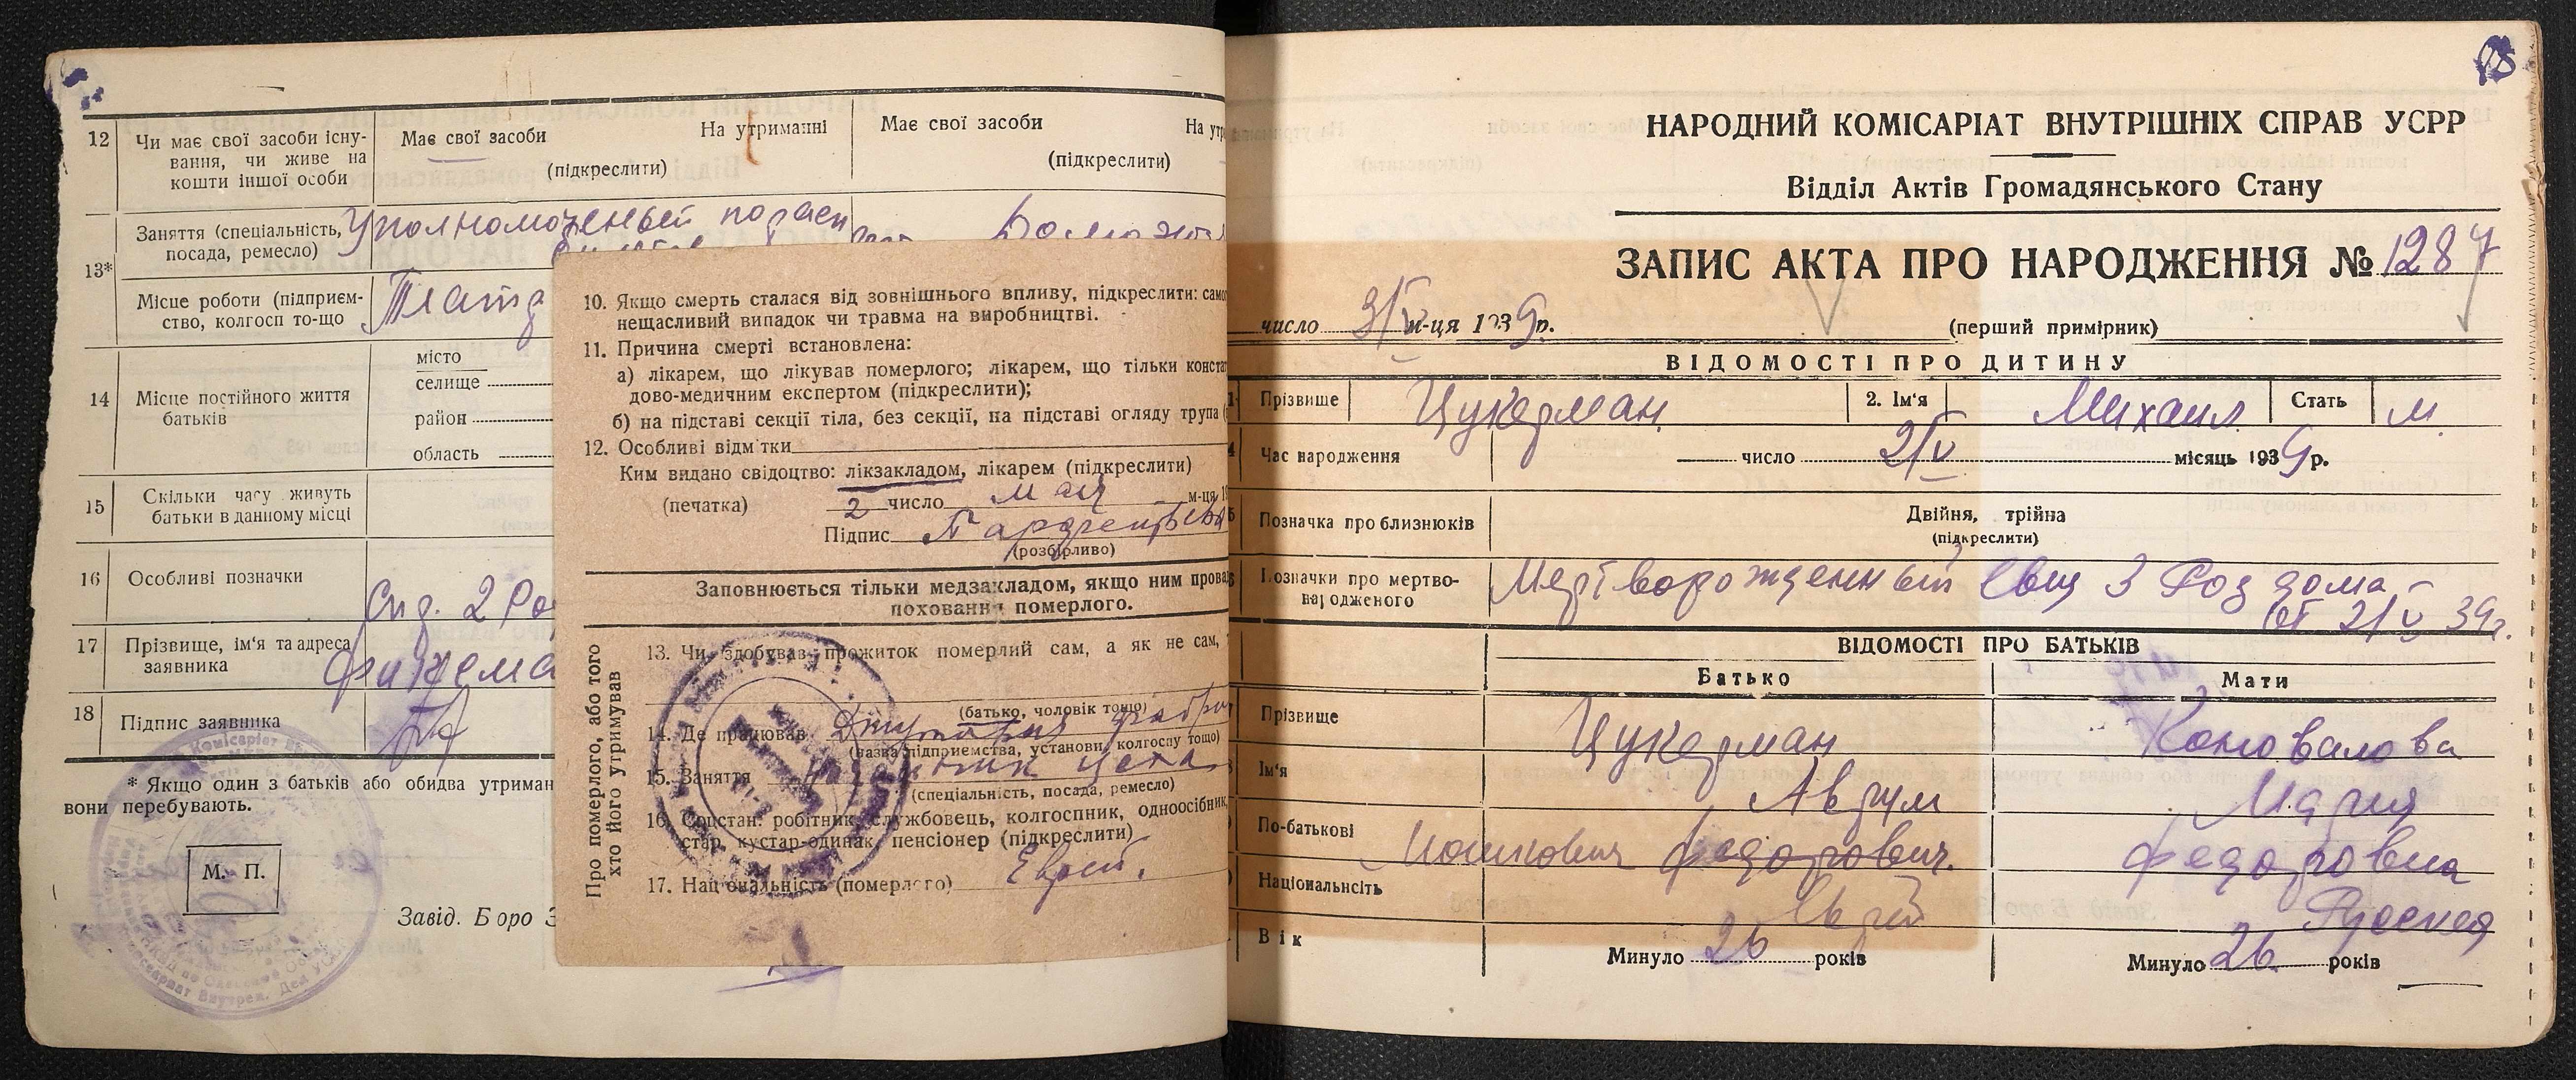 12
Чи має свої засоби існу-
вання, чи живе на
кошти іншої особи
Має свої засоби
На утриманні
(підкреслити)
Має свої засоби
На утр
(підкреслити)
13*
Заняття (спеціальність,
посада, ремесло)
Уполномоченный по
Місце роботи (підприєм-
ство, колгосп то-що
14
Місце постійного життя
батьків
місто
селище
район
область
15
Скільки часу живуть
батьки в данному місці
16
Особливі позначки
17
Прізвище, ім'я та адреса
заявника
18
Підпис заявника
* Якщо один з батьків або обидва утриман
вони перебувають.
М. П.
Завід. Бюро З
10. Якщо смерть сталася від зовнішнього впливу, підкреслити: само
нещасливий випадок чи травма на виробництві.
11. Причина смерті встановлена:
а) лікарем, що лікував померлого; лікарем, що тільки конста
дово-медичним експертом (підкреслити);
б) на підставі секції тіла, без секції, на підставі огляду трупа
12. Особливі відмітки
Ким видано свідоцтво: лікзакладом, лікарем (підкреслити)
(печатка) 2 число мая м-ця
Підпис
(розбірливо)
Заповнюється тільки медзакладом, якщо ним прова
поховання померлого.
Про померлого, або того
хто його утримував
13. Чи здобував прожиток померлий сам, а як не сам,
(батько, чоловік тощо)
14. Де працював Джутовая фабри
(назва підприємства, установи, колгоспу тощо)
15. Заняття цеха
(спеціальність, посада, ремесло)
16. Соцстан: робітник, службовець, колгоспник, одноосібник,
стар, кустар-одинак, пенсіонер (підкреслити)
17. Національність (померлого) Еврей.
НАРОДНИЙ КОМІСАРІАТ ВНУТРІШНІХ СПРАВ УСРР
Відділ Актів Громадянського Стану
ЗАПИС АКТА ПРО НАРОДЖЕННЯ № 1287
число 3/V м-ця 1939 р.
(перший примірник)
ВІДОМОСТІ ПРО ДИТИНУ
Прізвище Цукерман 2. Ім'я Михаил Стать м.
Час народження число 2/V місяць 1939 р.
Позначка про близнюків
Двійня, трійня
(підкреслити)
Позначки про мертво-
народженого
Мертворожденный свид 3 Род дома
от 2/V 39г.
ВІДОМОСТІ ПРО БАТЬКІВ
Батько
Мати
Прізвище Цукерман Коновалова
Ім'я Аврум Мария
По-батькові Мошкович Федорович. Федоровна
Національність Еврей Русская
Вік Минуло 26 років Минуло 26. років